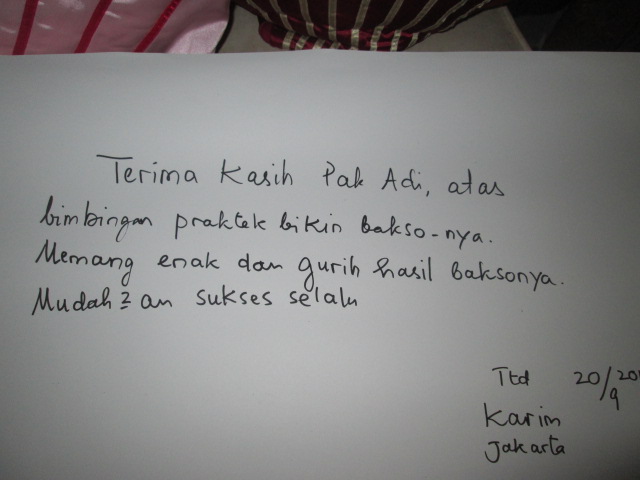 Terima Kasih Pak Adi, atas
bimbingan praktek bikin bakso-nya.
Memang enak dan gurih hasil baksonya.
Mudah2an sukses selalu
Ttd 20/9
Karim
Jakarta